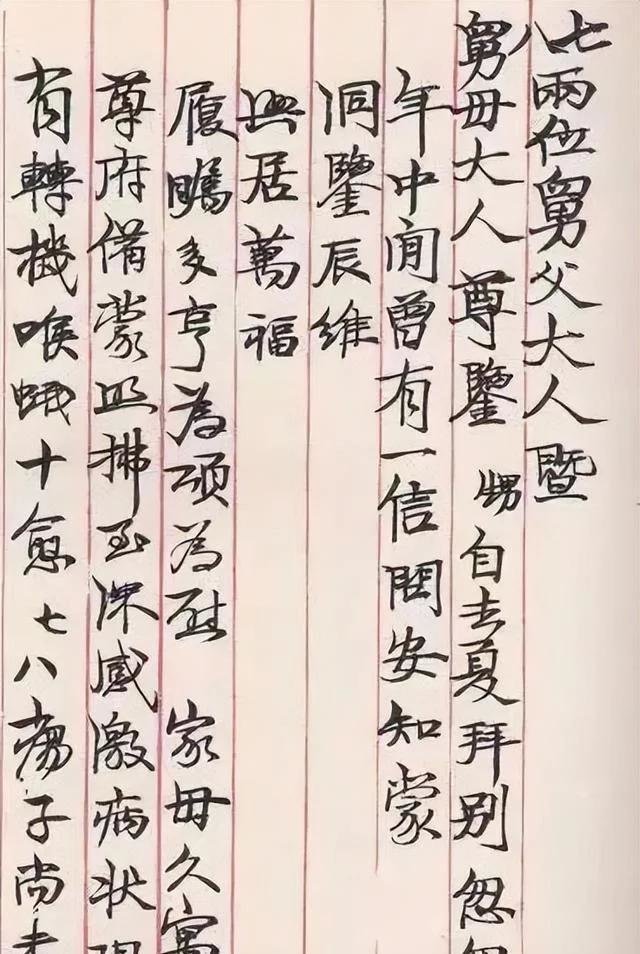 七八兩位舅父大人暨
舅母大人尊鑒 甥自去夏拜别忽忽
年中間曾有一信問安知蒙
洞鑒辰維
興居萬福
履瞩多亨為頌為慰 家母久寓
尊府備蒙照拂至深感激病状現
有轉機喉蛾十愈七八瘍子尚未